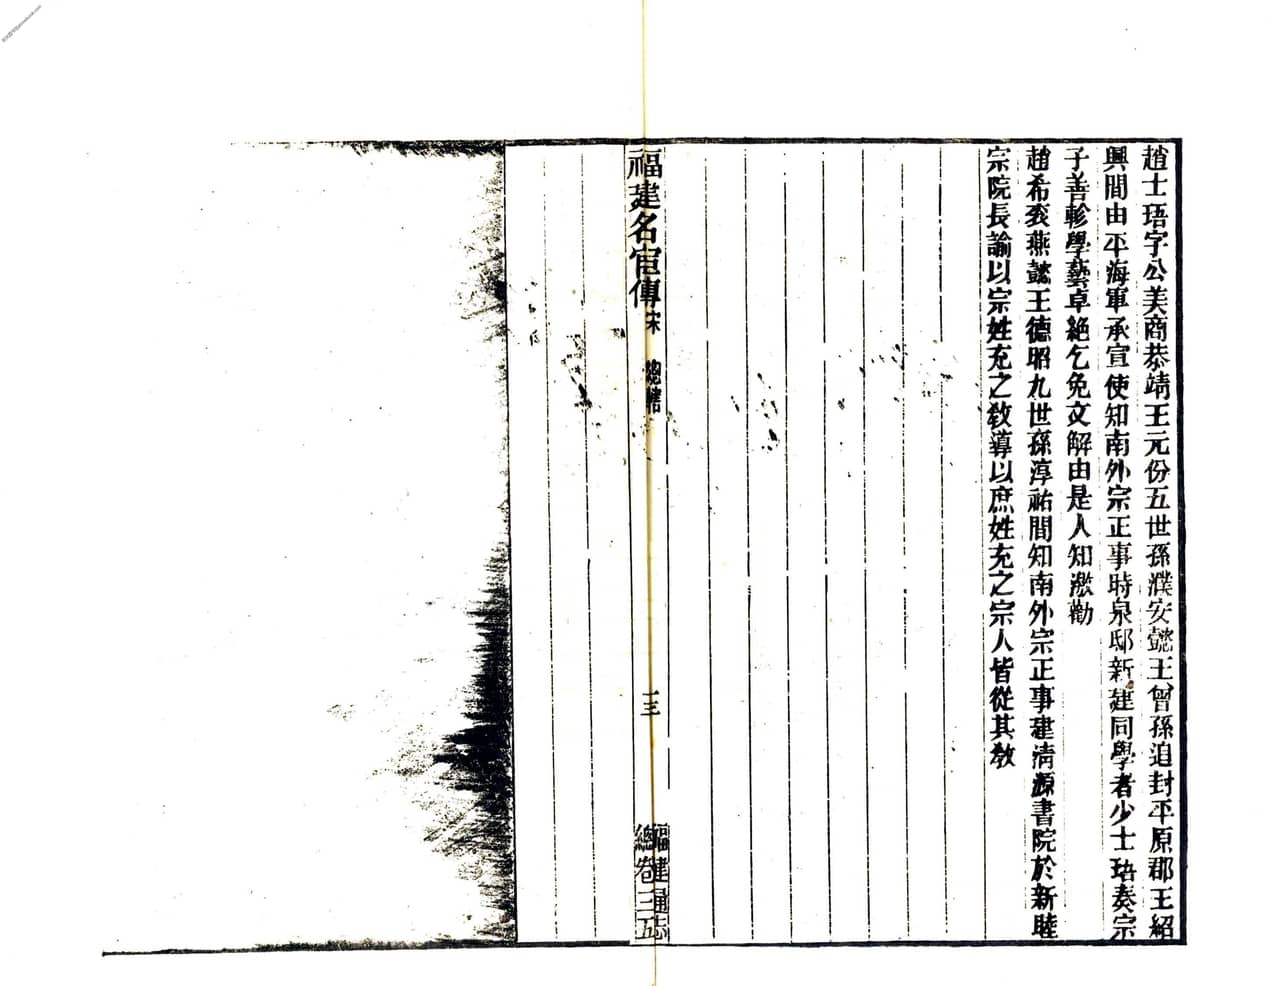 趙士珸字公美商恭靖王元份五世孫濮安懿王曾孫追封平原郡王紹
興間由平海軍承宣使知南外宗正事時泉邸新建同學者少士珸奏宗
子善軫學藝卓絶乞免文解由是人知激勸
趙希衮燕懿王德昭九世孫淳祐間知南外宗正事建清源書院於新睦
宗院長諭以宗姓充之敎導以庶姓充之宗人皆從其敎
福建名宦傳 宋 總轄
三
福建通志
總卷三五